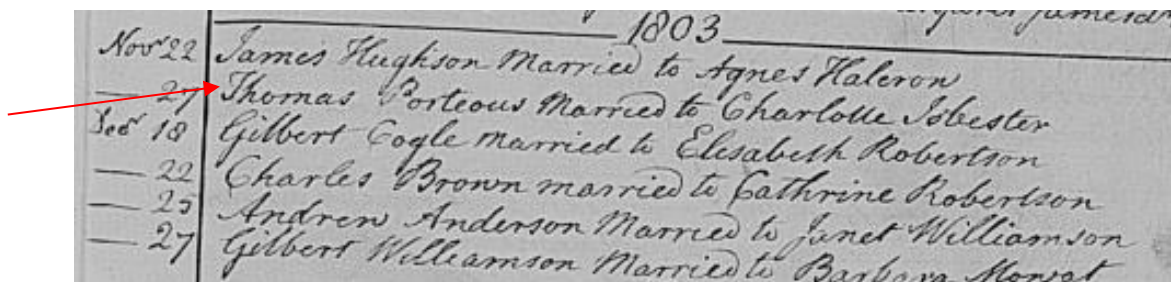 1803
Novr 22 James Hughson Married to Agnes Halcron
— 27 Thomas Porteous Married to Charlotte Isbester
Decr 18 Gilbert Cogle married to Elisabeth Robertson
— 22 Charles Brown married to Cathrine Robertson
— 25 Andrew Anderson Married to Janet Williamson
— 27 Gilbert Williamson Married to Barbara